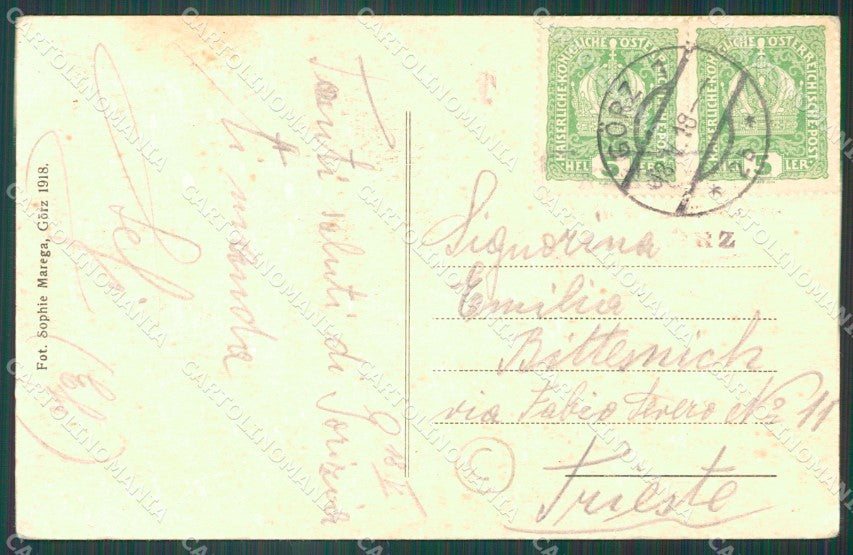 Fot. Sophie Marega, Görz 1918.
Tanti saluti di Gorizia
ti manda
18 V
KAISERLICHE KÖNIGLICHE ÖSTERREICHISCHE POST
HELLER
KAISERLICHE KÖNIGLICHE ÖSTERREICHISCHE POST
5 LER
GÖRZ 1
18
2a
RZ
Signorina
Emilia
Bittesnich
via Fabio Severo No 11
Trieste
CARTOLINOMANIA